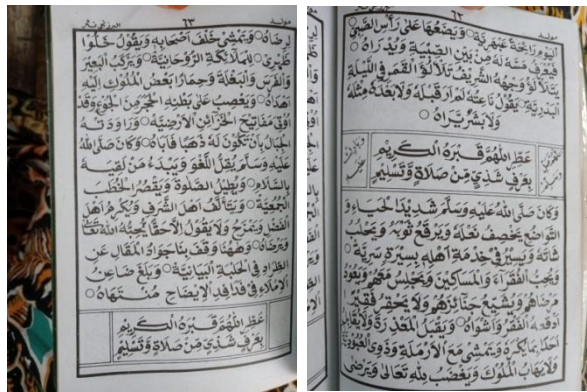 ٦٢
مولد
اليوم رائحة عبهرية ويضعها على رأس الصبي
فيعرف مسه له من بين الصبية ويدراه
يتلألأ وجهه الشريف تلألؤ القمر في الليلة
البدرية يقول ناعته لم أر قبله ولا بعده مثله
ولا بشر يراه
عطر اللهم قبره الكريم
بعرف شذي من صلاة وتسليم
وكان صلى الله عليه وسلم شديد الحياء و
التواضع يخصف نعله ويرقع ثوبه ويحلب
شاته ويسير في خدمة أهله بسيرة سرية
ويحب الفقراء والمساكين ويجلس معهم ويعود
مرضاهم ويشيع جنائزهم ولا يحقر فقيرا
أدقعه الفقر وأشواه ويقبل المعذرة ولا يقابل
أحدا بما يكره ويمشي مع الأرملة وذوي العبودية
ولا يهاب الملوك ويغضب لله تعالى ويرضى
مولد
٦٣
البرزنجي نثر
لرضاه ويمشي خلف أصحابه ويقول خلوا
ظهري للملائكة الروحانية ويركب البعير
والفرس والبغلة وحمارا بعض الملوك إليه
أهداه ويعصب على بطنه الحجر من الجوع وقد
أوتي مفاتيح الخزائن الأرضية وراودته
الجبال بأن تكون له ذهبا فأباه وكان صلى الله
عليه وسلم يقل اللغو ويبدء من لقيه
بالسلام ويطيل الصلوة ويقصر الخطب
الجمعية ويتألف أهل الشرف ويكرم أهل
الفضل ويمزح ولا يقول إلا حقا يحبه الله تعالى
ويرضاه وههنا وقف بنا جواد المقال عن
الطراد في الحلبة البيانية وبلغ ظاعن
الإملاء في فدافد الإيضاح منتهاه
عطر اللهم قبره الكريم
بعرف شذي من صلاة وتسليم